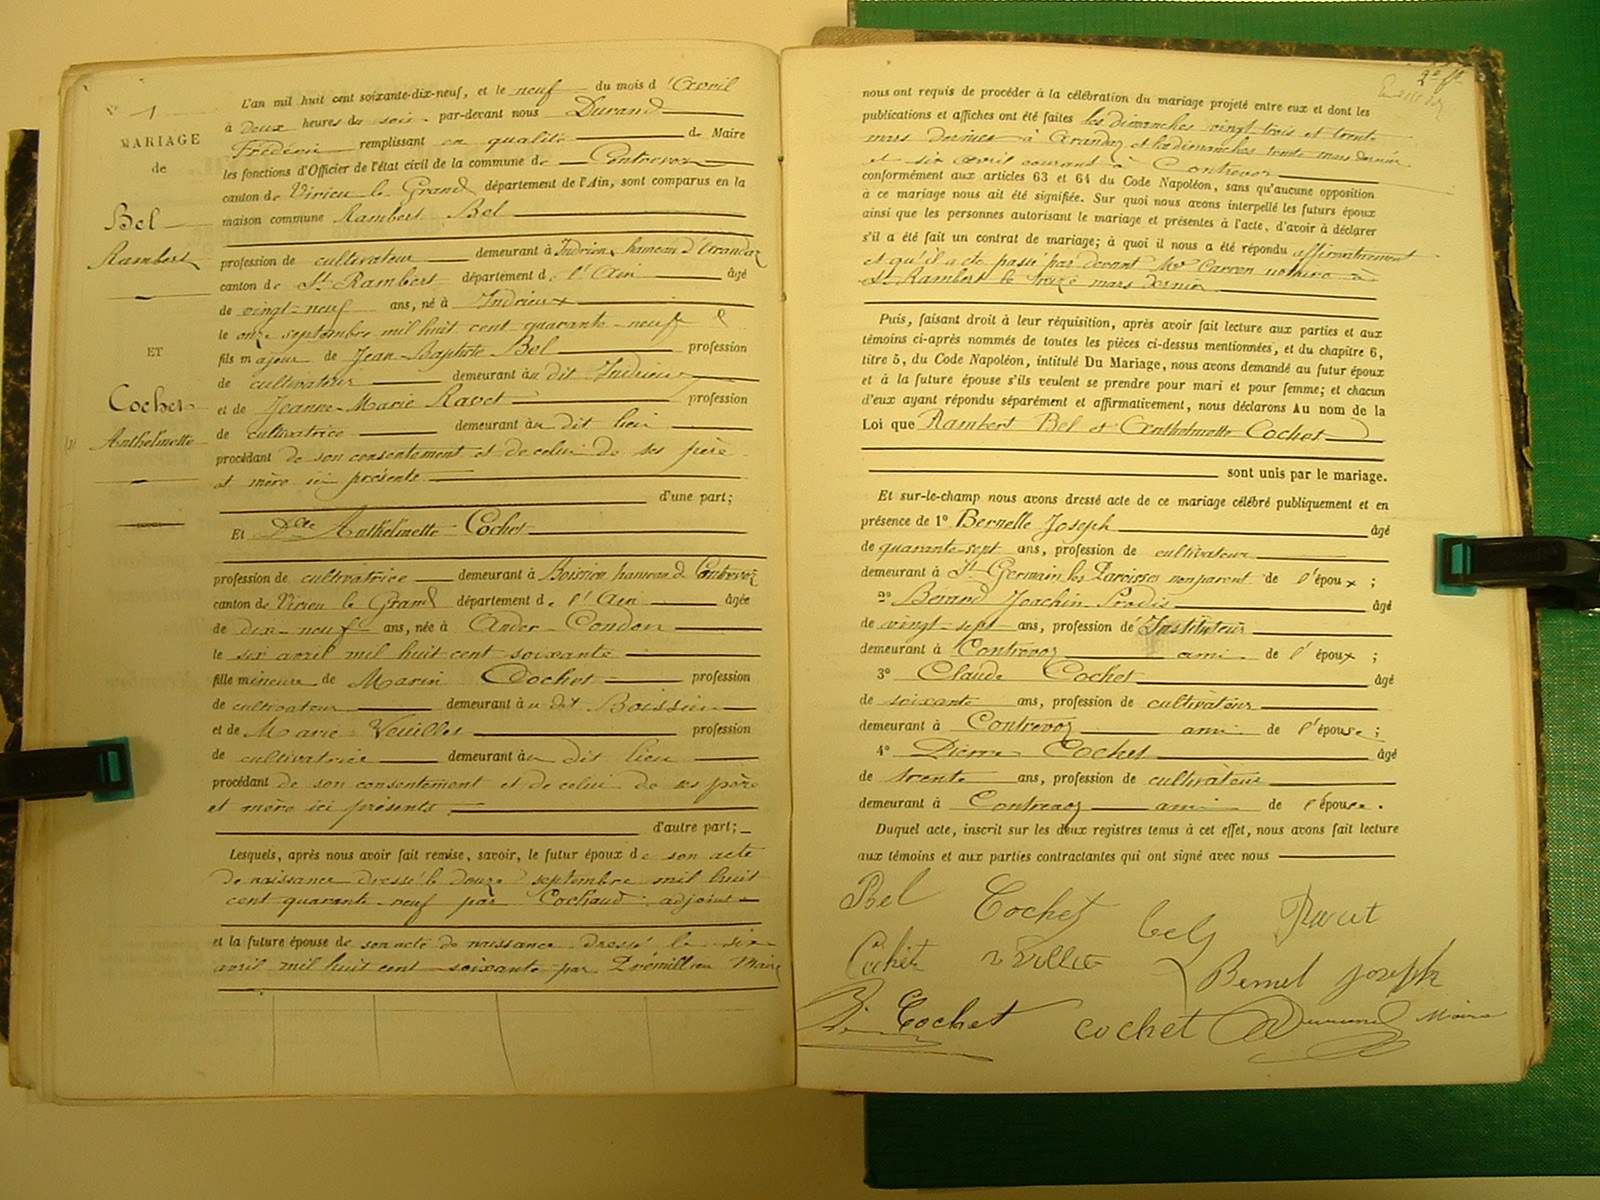 N° 1
MARIAGE
de
Bel
Rambert
ET
Cochet
Anthelmette
L'an mil huit cent soixante-dix-neuf, et le neuf du mois d'Avril
à deux heures du soir par-devant nous Durand
Frédéric remplissant en qualité de Maire
les fonctions d'Officier de l'état civil de la commune de Contrevoz
canton de Virieu le Grand département de l'Ain, sont comparus en la
maison commune Rambert Bel
profession de cultivateur demeurant à Indrieux hameau d'Arandas
canton de St Rambert département de l'Ain âgé
de vingt-neuf ans, né à Indrieux
le onze septembre mil huit cent quarante-neuf
fils majeur de Jean-Baptiste Bel profession
de cultivateur demeurant au dit Indrieux
et de Jeanne-Marie Ravet profession
de cultivatrice demeurant au dit lieu
procédant de son consentement et de celui de ses père
et mère ici présents
d'une part;
Et Dlle Anthelmette Cochet
profession de cultivatrice demeurant à Boissieu hameau de Contrevoz
canton de Virieu le Grand département de l'Ain âgée
de dix-neuf ans, née à Ander-Condon
le six avril mil huit cent soixante
fille mineure de Marin Cochet profession
de cultivateur demeurant au dit Boissieu
et de Marie Veuillet profession
de cultivatrice demeurant au dit lieu
procédant de son consentement et de celui de ses père
et mère ici présents
d'autre part;
Lesquels, après nous avoir fait remise, savoir, le futur époux de son acte
de naissance dressé le douze septembre mil huit
cent quarante-neuf par Cochaud adjoint
et la future épouse de son acte de naissance dressé le six
avril mil huit cent soixante par Prémillieu Maire
2e ft
nous ont requis de procéder à la célébration du mariage projeté entre eux et dont les
publications et affiches ont été faites les dimanches vingt trois et trente
mars derniers à Arandas et les dimanches trente mars dernier
et six avril courant à Contrevoz
conformément aux articles 63 et 64 du Code Napoléon, sans qu'aucune opposition
à ce mariage nous ait été signifiée. Sur quoi nous avons interpellé les futurs époux
ainsi que les personnes autorisant le mariage et présentes à l'acte, d'avoir à déclarer
s'il a été fait un contrat de mariage; à quoi il nous a été répondu affirmativement
et qu'il a été passé par devant Me Carron notaire à
St Rambert le treize mars dernier
Puis, faisant droit à leur réquisition, après avoir fait lecture aux parties et aux
témoins ci-après nommés de toutes les pièces ci-dessus mentionnées, et du chapitre 6,
titre 5, du Code Napoléon, intitulé Du Mariage, nous avons demandé au futur époux
et à la future épouse s'ils veulent se prendre pour mari et pour femme; et chacun
d'eux ayant répondu séparément et affirmativement, nous déclarons Au nom de la
Loi que Rambert Bel et Anthelmette Cochet
sont unis par le mariage.
Et sur-le-champ nous avons dressé acte de ce mariage célébré publiquement et en
présence de 1° Bernelle Joseph âgé
de quarante-sept ans, profession de cultivateur
demeurant à St Germain les Paroisses non parent de l'époux ;
2° Berard Joachin Prodis âgé
de vingt-sept ans, profession de Instituteur
demeurant à Contrevoz ami de l'époux ;
3° Claude Cochet âgé
de soixante ans, profession de cultivateur
demeurant à Contrevoz ami de l'épouse ;
4° Pierre Cochet âgé
de trente ans, profession de cultivateur
demeurant à Contrevoz ami de l'épouse.
Duquel acte, inscrit sur les deux registres tenus à cet effet, nous avons fait lecture
aux témoins et aux parties contractantes qui ont signé avec nous
Bel Cochet bel Ravet
Cochet Bernel joseph
Cochet cochet Durand Maire